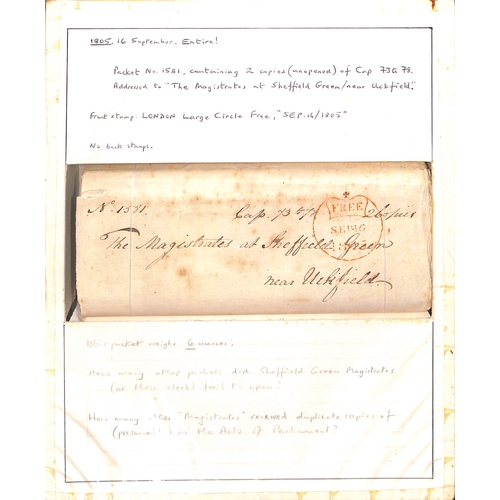 1805, 16 September. Entire!
Packet No. 1581, containing 2 copies (unopened) of Cap 73 to 78.
Addressed to "The Magistrates at Sheffield Green/near Uckfield".
Front stamp: LONDON Large Circle Free, "SEP.16/1805"
No back stamps.
No. 1581.
Cap. 73 to 78
2 Copies
FREE
SE 16
The Magistrates at Sheffield Green
near Uckfield.
This packet weighs 6 ounces;
How many other packets did Sheffield Green Magistrates
(or their clerk) fail to open?
How many "Magistrates" received duplicate copies of
the Acts of Parliament?